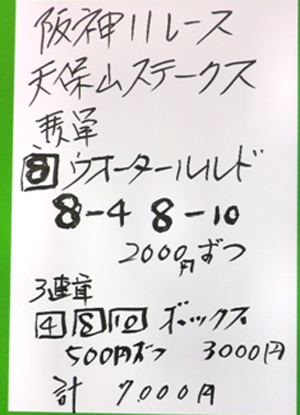 阪神11レース
天保山ステークス
馬単
8 ウオータールルド
8-4 8-10
2000円ずつ
3連単
4 8 10 ボックス
500円ずつ 3000円
計 7,000円